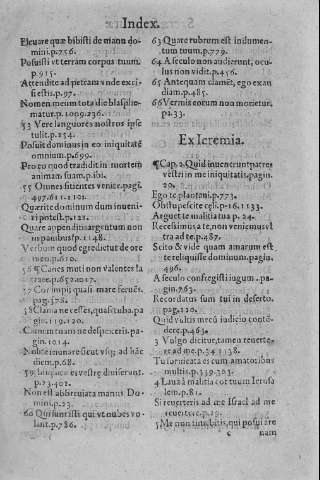 Index.
Eleuare quæ bibisti de manu do-
mini. p.756.
Posuisti vt terram corpus tuum.
p.915.
Attendite ad petram vnde exci-
si estis. p.97.
Nomen meum tota die blasphe-
matur. p.1009.236.
53 Vere languores nostros ipse
tulit. p.254.
Posuit dominus in eo iniquitatē
omnium. p.699.
Pro eo quod tradidit in mortem
animam suam. p.
55 Omnes sitientes venite. pagi.
497.611.1101.
Quærite dominum dum inueni-
ri potest. p.121.
Quare appenditis argentum non
in panibus? p.1148.
Verbum quod egredietur de ore
meo. p.610.
56 ¶ Canes muti non valentes la
trare. p.652.1017.
57 Cor impij quasi mare feruēs.
pag.378.
58 Clama ne cesses, quasi tuba. pa
gin.119.120.
Carnem tuam ne despexeris. pa-
gin.1014.
Nolite ieiunare sicut vsq; ad hāc
diem. p.68.
59 Iniquitates vestræ diuiserant.
p.73.402.
Non est abbreuiata manus Do-
mini. p.23.
60 Qui sunt isti qui vt nubes vo-
lant. p.786.
63 Quare rubrum est indumen-
tum tuum. p.779.
64 A seculo non audierunt, ocu-
lus non vidit. p.456.
65 Antequam clamēt, ego exau
diam. p.485.
66 Vermis eorum non morietur.
pa.33.
Ex Ieremia.
¶ Cap. 2. Quid inuenerunt patres
vestri in me iniquitatis. pagin.
20.
Ego te plantaui. p.773.
Obstupescite cęli. p.16.1133.
Arguet te malitia tua p. 24.
Recessimus a te, non veniemus vl
tra ad te. p.487.
Scito & vide quam amarum est
te reliquisse dominum. pagin.
496.
A seculo confregisti iugum. pa-
gin.763.
Recordatus sum tui in deserto.
pag.120.
Quid vultis mecū iudicio contē-
dere. p.463.
3 Vulgo dicitur, tamen reuerte-
re ad me. p.34.1138.
Tu fornicata es cum amatoribus
multis. p.339.303.
4 Laua à malitia cor tuum Ierusa
lem. p.81.
Si reuerteris ad me Israel ad me
reuertere. p.19.
5 Me non timebitis, qui posui are
c nam